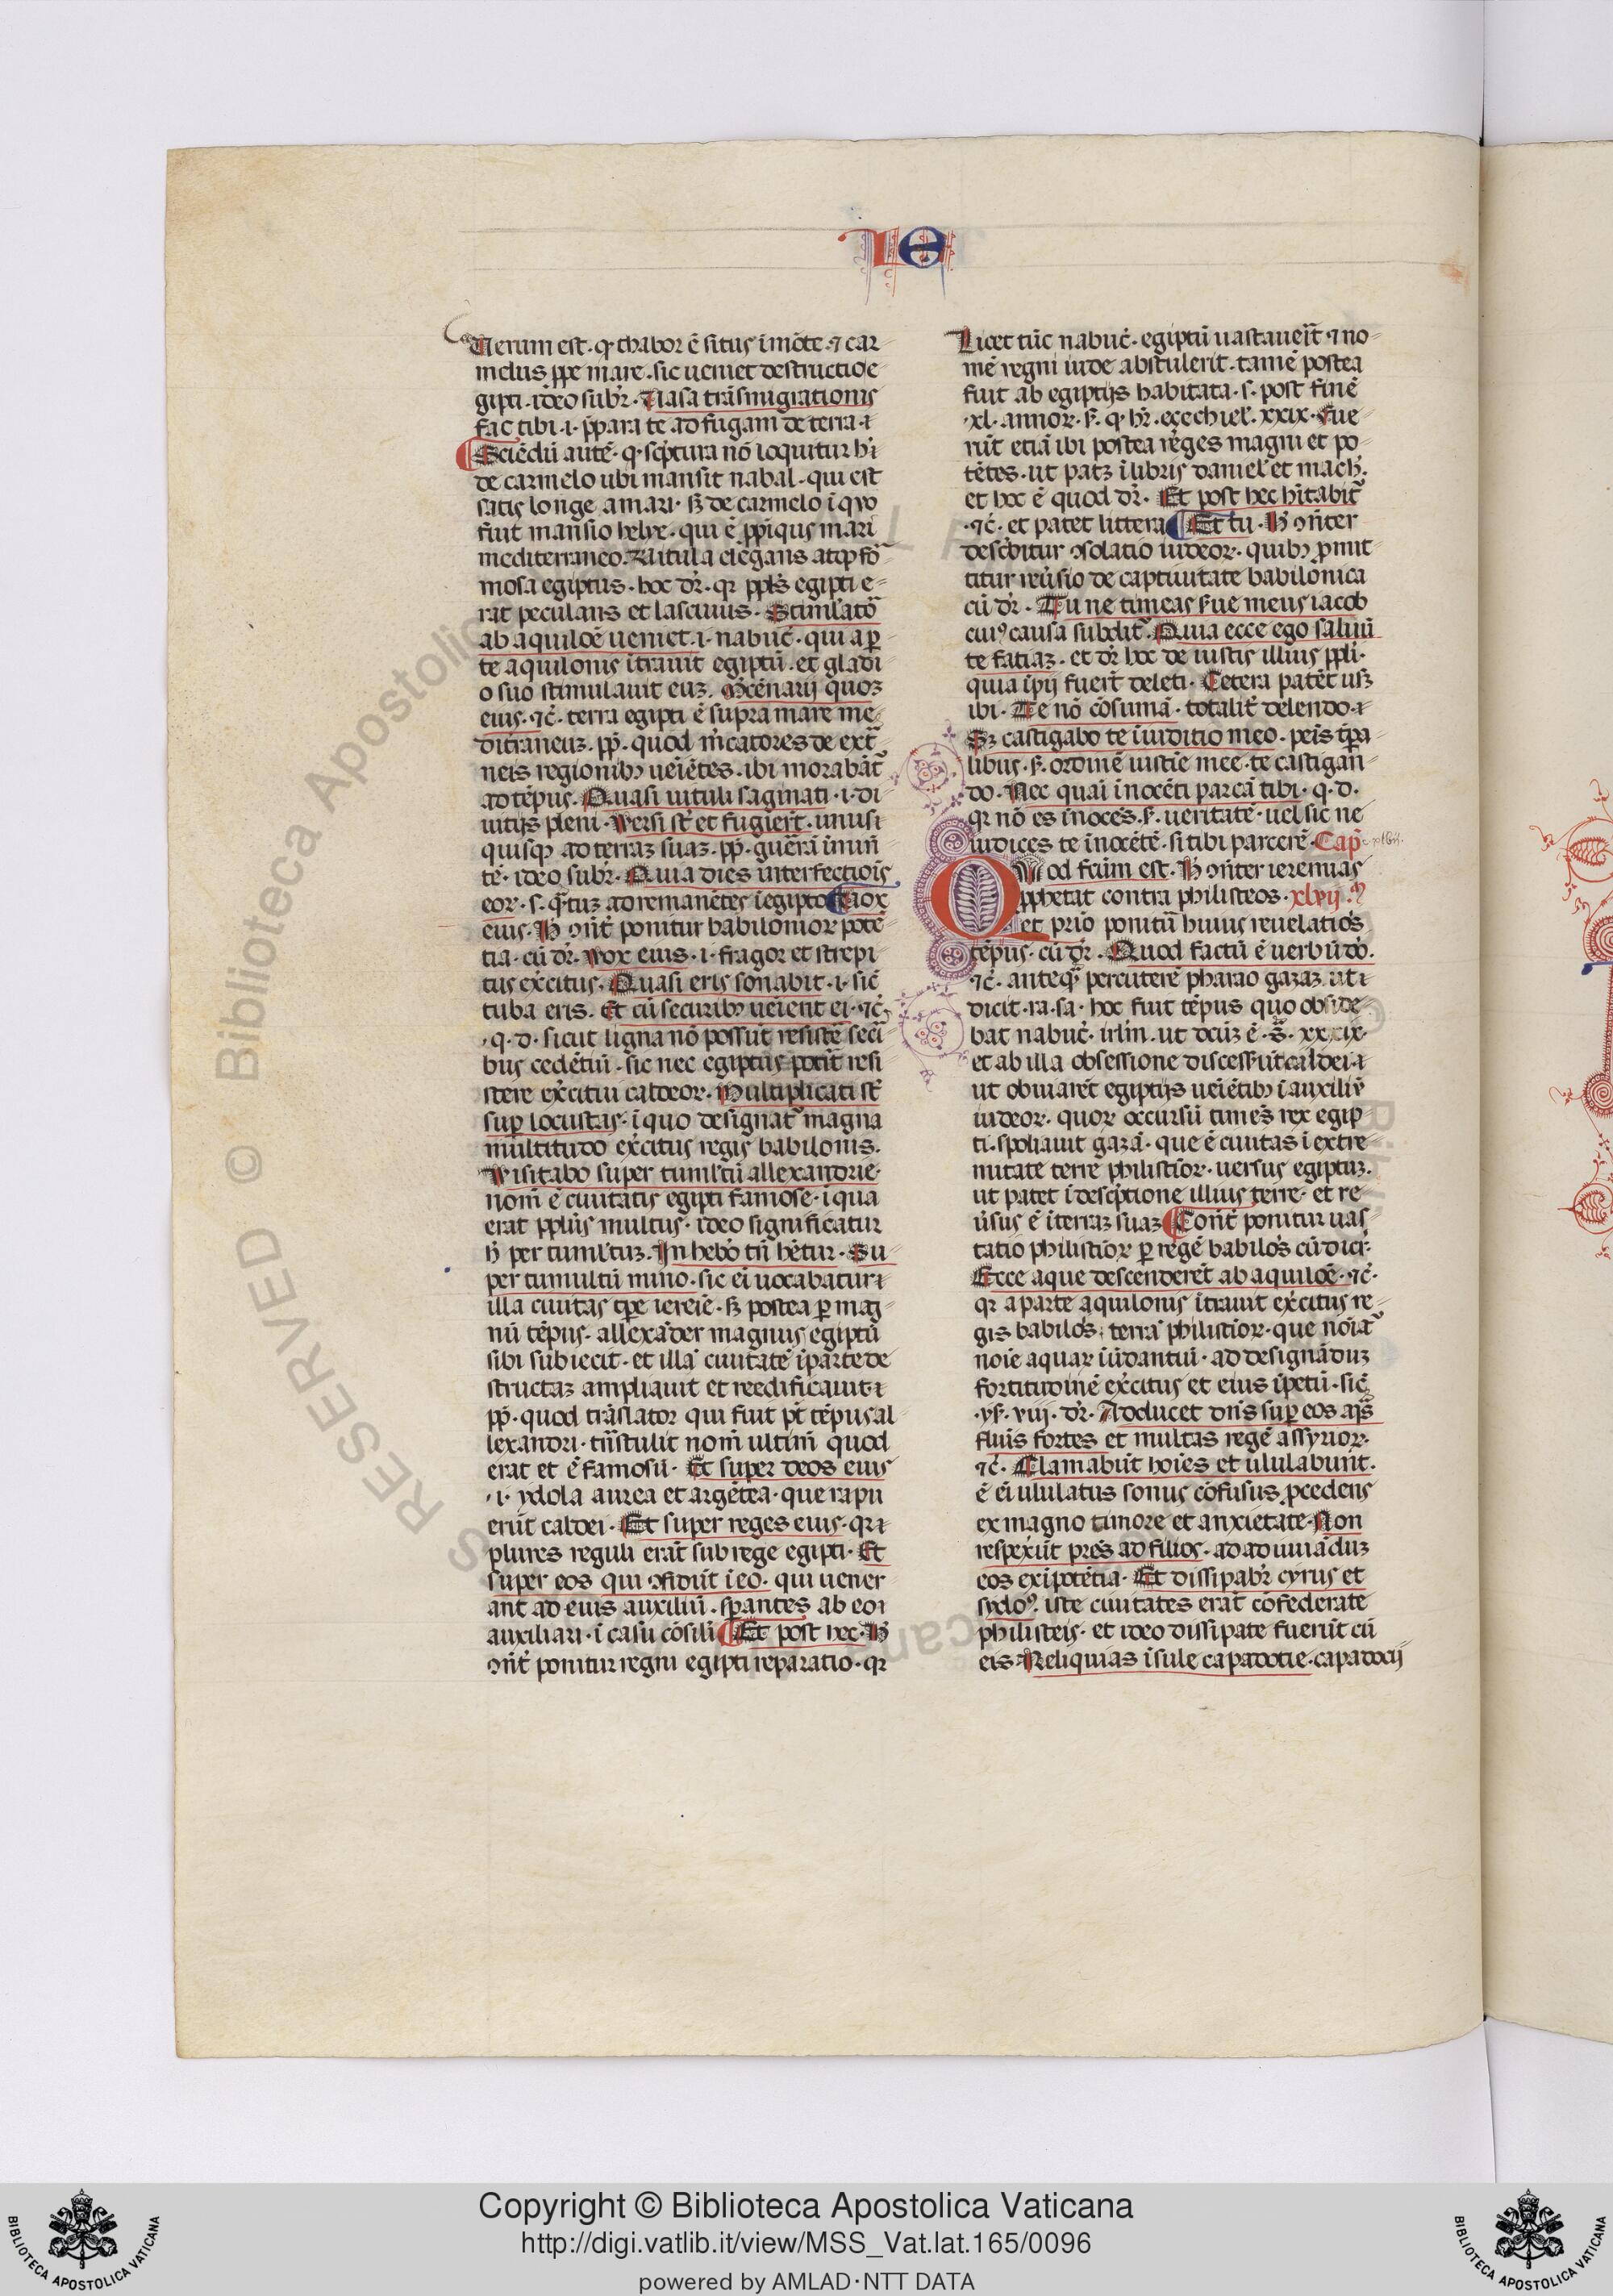 Ie
Uerum est · qꝫ thabor ē situs ī mōte · ⁊ car
melus ꝓpe mare · sic ueniet destructio e
gipti · ideo subr̄ · Uasa trāsmigrationis
fac tibi · i · p̄para te ad fugam de terra · i
Sciēdū autē · qꝫ sc̄ptura nō loquitur hi
de carmelo ubi mansit nabal · qui est
satis longe a mari · sꝫ de carmelo ī quo
fuit mansio helye · qui ē ꝓpīqus mari
mediterraneo · Uitula elegans atqꝫ fo
mosa egiptus · hoc dr̄ · qr ppl̄s egipti e
rat peculans et lasciuus · Stimlatō
ab aquilōe ueniet · i · nabuc̄ · qui a ꝑ
te aquilonis ītrauit egiptū · et gladi
o suo stimulauit euꝫ · M̄cēnarij quoꝫ
eius · ⁊c̄ · terra egipti ē supra mare me
ditraneuꝫ · pp̄ · quod m̄catores de ext
neis regionibꝫ ueīetes · ibi morabāt
ad tēpus · Quasi uituli saginati · i · di
uitijs pleni · Uersi st̄ et fugiert̄ · unusi
quisqꝫ ad terraꝫ suaꝫ · pp̄ · guerrā īmin
tē · ideo subr̄ · Quia dies interfectiois
eor · s · q̄tuꝫ ad remanētes ī egipto Uox
eius · H ɔn̄t ponitur babilonior potē
tia · cū dr̄ · Uox eius · i · fragor et strepi
tus exc̄itus · Quasi eris sonabit · i · sic̄
tuba eris · Et cū securibꝫ ueīent ei · ⁊c̄
· q · d · sicut ligna nō possūt resistē secu
bus cedētiū · sic nec egiptus pot̄it resi
stere exc̄itui caldeor · Multiplicati st̄
suꝑ locustas · ī quo designat magna
multitudo exc̄itus regis babilonis ·
Uisitabo super tumltū allexandrie ·
nom̄ ē ciuitatis egipti famose · ī qua
erat ppl̄us multus · ideo significatur
h̄ per tumltuꝫ · In hebō tn̄ hētur · Su
per tumultū mino · sic ei uocabatur i
illa ciuitas tꝑe ieremīe · sꝫ postea ꝑ mag
nū tēpus · allexāder magnus egiptū
sibi subiecit · et illā ciuitatē ī parte de
structaꝫ ampliauit et reedificauit · i
pp̄ · quod trāslator qui fuit pt̄ tēpus al
lexandri · trāstulit nom̄ ultim̄ quod
erat et ē famosū · Et super deos eius
· i · ydola aurea et argētea · que rapu
erūt caldei · Et super reges eius · qr i
plures reguli erāt sub rege egipti · Et
super eos qui ɔfidūt ī eo · qui uener
ant ad eius auxiliū · sꝑantes ab eo i
auxiliari · ī casu cōsili Et post hec · H
ɔn̄t ponitur regni egipti reparatio · qr
Licet tūc nabuc̄ · egiptū uastauerit · ⁊ no
mē regni inde abstulerit · tamē postea
fuit ab egiptijs habitata · s · post finē
· xl · annor · s̄ · qꝫ hr̄ · eȝechiel · xxix · Fue
rūt etiā ibi postea reges magni et po
tētes · ut patꝫ ī libris daniel et mach ·
et hoc ē quod dr̄ · Et post hec hītabit
· ⁊c̄ · et patet littera Et tu · H ɔnt̄er
desc̄bitur ɔsolatio iudeor · quibꝫ ꝓmit
titur reu̇sio de captiuitate babilonica
cū dr̄ · Tu ne timeas s̄ue meus iacob
cuiꝰ causa subdit · Quia ecce ego saluū
te fatiaꝫ · et dr̄ hoc de iustis illius ppli ·
quia īpij fuert̄ deleti · Cetera patēt usꝫ
ibi · Te nō cōsumā · totalit̄ delendo · i
Sꝫ castigabo te ī iuditio meo · peīs tꝑa
libus · s̄ · ordinē iustīe mee · te castigan
do · Nec quasi īnocēti parcā tibi · q · d ·
qr nō es īnocēs · s̄ · ueritatē · uel sic ne
iudices te īnocētē · si tibi parcerē · Cap̄
xlvii ·
Quod fcūm est · H ɔnt̄er ieremias
ꝓphetat contra philisteos · xlvij · m
et prio ponit̄ū huius reuelatiōs
tēpus · cū dr̄ · Quod factū ē uerbū dō ·
⁊c̄ · anteqꝫ percuterē pharao gaȝaꝫ · ut i
dicit · ra · sa · hoc fuit tēpus quo obside
bat nabuc̄ · irlm · ut dcūꝫ ē · s̄ · xxxix ·
et ab illa obsessione discess̄ūt caldei · i
ut obuiarēt egiptijs ueīetibꝫ ī auxiliū
iudeor · quor occursū times̄ rex egip
ti · spoliauit gaȝā · que ē ciuitas ī extre
mitate terre philistior · uersus egiptuꝫ ·
ut patet ī desc̄ptione illius terre · et re
u̇sus ē ī terraꝫ suaꝫ Cont̄ ponitur uas
tatio philistior ꝑ regē babilōs cū dicr̄ ·
Ecce aque descenderēt ab aquilōe · ⁊c̄ ·
qr a parte aquilonis ītrauit exc̄itus re
gis babilōs · terrā philistior · que noīat
noīe aquar īūdantiū · ad designāduꝫ
fortitudinē exc̄itus et eius īpetū · sic̄
· ys̄ · viij · dr̄ · Adducet dns̄ suꝑ eos aq̄s
fluīs fortes et multas regē assyrior ·
⁊c̄ · Clamabūt hoīes et ululabunt ·
ē ei ululatus sonus cōfusus ꝓcedens
ex magno timore et anxietate · Non
respexūt pres̄ ad filios · ad adiuuāduꝫ
eos ex īpotētia · Et dissipabr̄ cyrus et
sydoꝰ · iste ciuitates erāt cōfederate
philisteis · et ideo dissipate fuerūt cū
eis · Reliquias īsule capadotie · capadocij
Copyright © Biblioteca Apostolica Vaticana
http://digi.vatlib.it/view/MSS_Vat.lat.165/0096
powered by AMLAD·NTT DATA
BIBLIOTECA APOSTOLICA VATICANA
BIBLIOTECA APOSTOLICA VATICANA